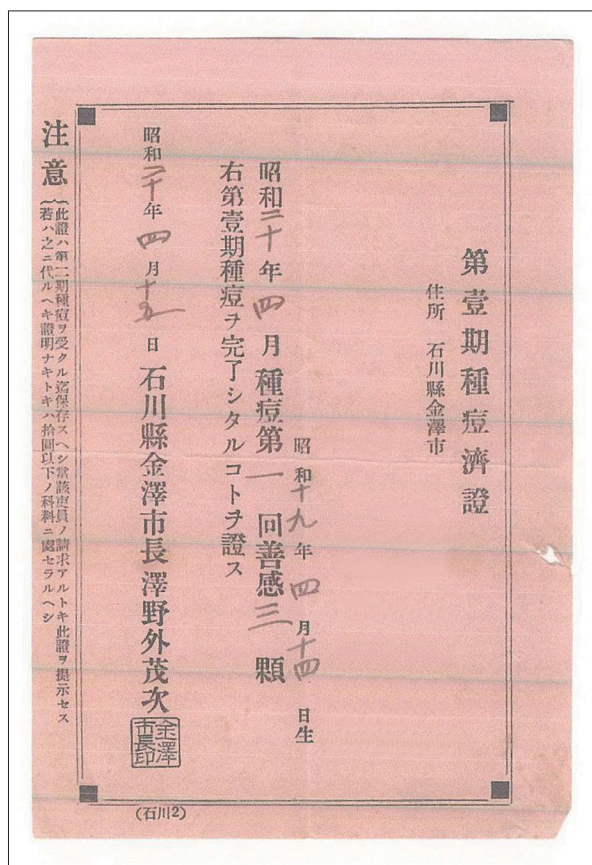 第壹期種痘濟證
住所　石川縣金澤市
昭和十九年四月十四日生
昭和二十年四月種痘第一回善感三顆
右第壹期種痘ヲ完了シタルコトヲ證ス
昭和二十年四月十五日　石川縣金澤市長澤野外茂次
金澤市長印
注意
此證ハ第二期種痘ヲ受クル迄保存スヘシ當該吏員ノ請求アルトキ此證ヲ提示セス
若ハ之ニ代ルヘキ證明ナキトキハ拾圓以下ノ科料ニ處セラルヘシ
(石川2)